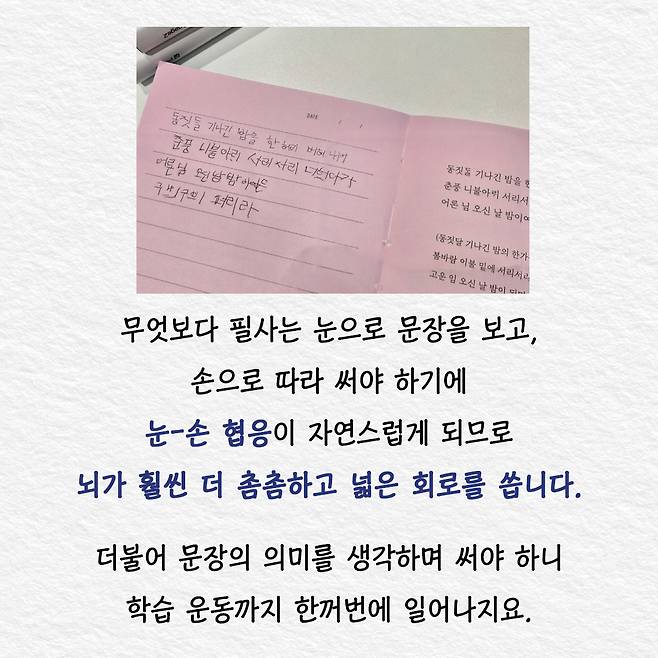 DATE / /
동짓돌 기나긴 밤을 한
춘풍 니불아리 서리서리 너헛다가
어론님
구뷔구뷔 펴리라
동짓돌 기나긴 밤을 한
춘풍 니불아뤼 서리서
어론 님 오신 날 밤이여
(동짓달 기나긴 밤의 한가
봄바람 이불 밑에 서리서리
고운 임 오신 날 밤이 되면
무엇보다 필사는 눈으로 문장을 보고,
손으로 따라 써야 하기에
눈-손 협응이 자연스럽게 되므로
뇌가 훨씬 더 촘촘하고 넓은 회로를 씁니다.
더불어 문장의 의미를 생각하며 써야 하니
학습 운동까지 한꺼번에 일어나지요.